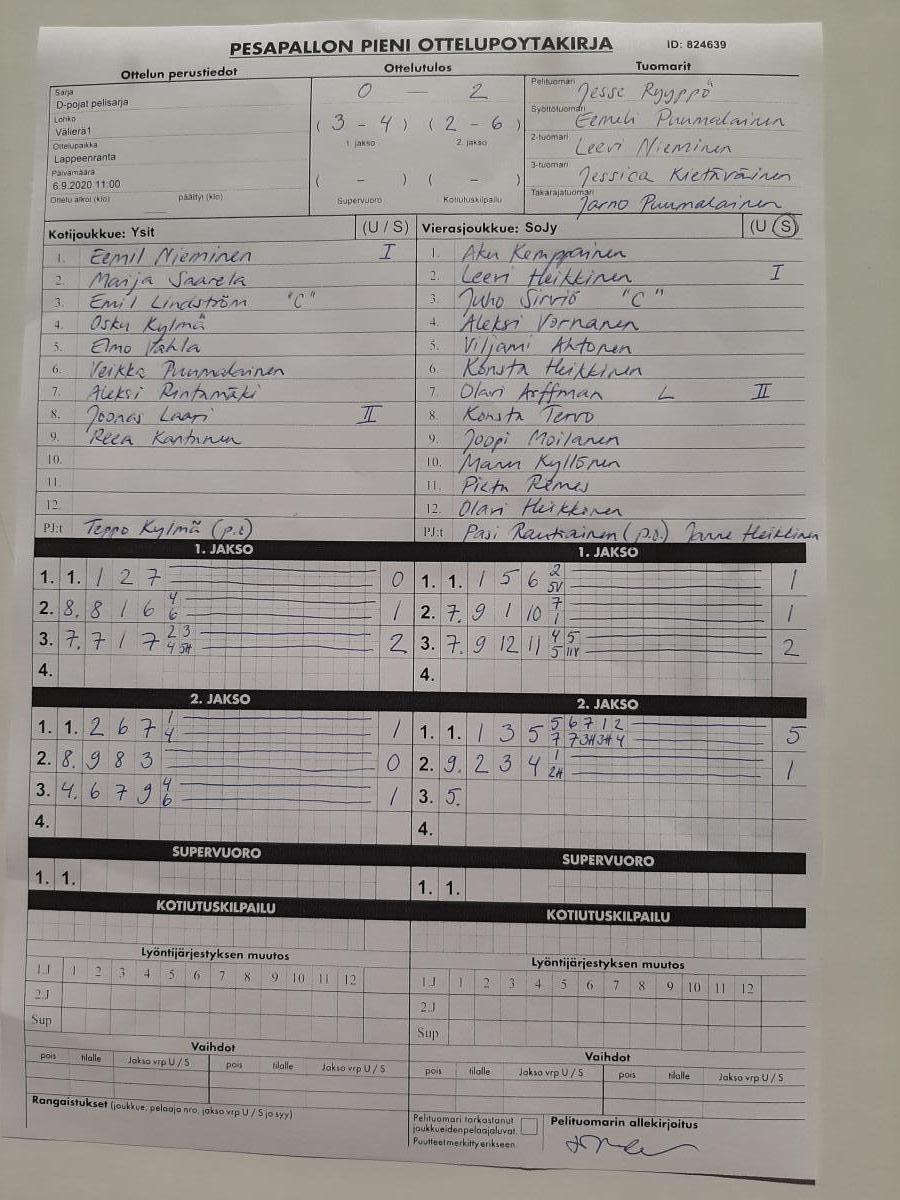 PESAPALLON PIENI OTTELUPOYTAKIRJA ID: 824639
Ottelun perustiedot Ottelutulos Tuomarit
Sarja
D-pojat pelisarja
Lohko
Välierä1
Ottelupaikka
Lappeenranta
Päivämäärä
6.9.2020 11:00
Ottelu alkoi (klo) päättyi (klo)
0 — 2
( 3 - 4 ) ( 2 - 6 )
1. jakso 2. jakso
( - ) ( - )
Supervuoro Kotiutuskilpailu
Pelituomari Jesse Ryyppö
Syöttötuomari Eemeli Puumalainen
2-tuomari Leevi Nieminen
3-tuomari Jessica Kietäväinen
Takarajatuomari Jarno Puumalainen
Kotijoukkue: Ysit (U / S)
1. Eemil Nieminen I
2. Marja Saarela
3. Emil Lindström "C"
4. Osku Kylmä
5. Elmo Vahla
6. Veikka Puumalainen
7. Aleksi Rintamäki
8. Joonas Laari II
9. Reea Kantanen
10.
11.
12.
PJ:t Teppo Kylmä (p.t)
Vierasjoukkue: SoJy (U / S)
1. Aku Kemppainen
2. Leevi Heikkinen I
3. Juho Sirviö "C"
4. Aleksi Vornanen
5. Viljami Ahtonen
6. Konsta Heikkinen
7. Olavi Arffman L II
8. Konsta Tervo
9. Joopi Moilanen
10. Kyllönen
11. Remes
12. Olavi Heikkonen
PJ:t Pasi Rautiainen (p.t) Janne Heikkinen
1. JAKSO
1. 1. 1 2 7 0
2. 8. 8 1 6 4 6 1
3. 7. 7 1 7 2 3 4 5H 2
4.
1. JAKSO
1. 1. 1 5 6 2 5V 1
2. 7. 9 1 10 7 1 1
3. 7. 9 12 11 4 5 5 11V 2
4.
2. JAKSO
1. 1. 2 6 7 1 4 1
2. 8. 9 8 3 0
3. 4. 6 7 9 4 6 1
4.
2. JAKSO
1. 1. 1 3 5 5 6 7 1 2 7 7 3H 3H 4 5
2. 9. 2 3 4 1 2H 1
3. 5.
4.
SUPERVUORO
1. 1.
SUPERVUORO
1. 1.
KOTIUTUSKILPAILU
KOTIUTUSKILPAILU
Lyöntijärjestyksen muutos
1.J 1 2 3 4 5 6 7 8 9 10 11 12
2.J
Sup
Lyöntijärjestyksen muutos
1.J 1 2 3 4 5 6 7 8 9 10 11 12
2.J
Sup
Vaihdot
pois tilalle Jakso vrp U / S pois tilalle Jakso vrp U / S
Vaihdot
pois tilalle Jakso vrp U / S pois tilalle Jakso vrp U / S
Rangaistukset (joukkue, pelaaja nro, jakso vrp U / S ja syy)
Pelituomari tarkastanut
joukkueiden pelaajaluvat.
Puutteet merkitty erikseen.
Pelituomarin allekirjoitus